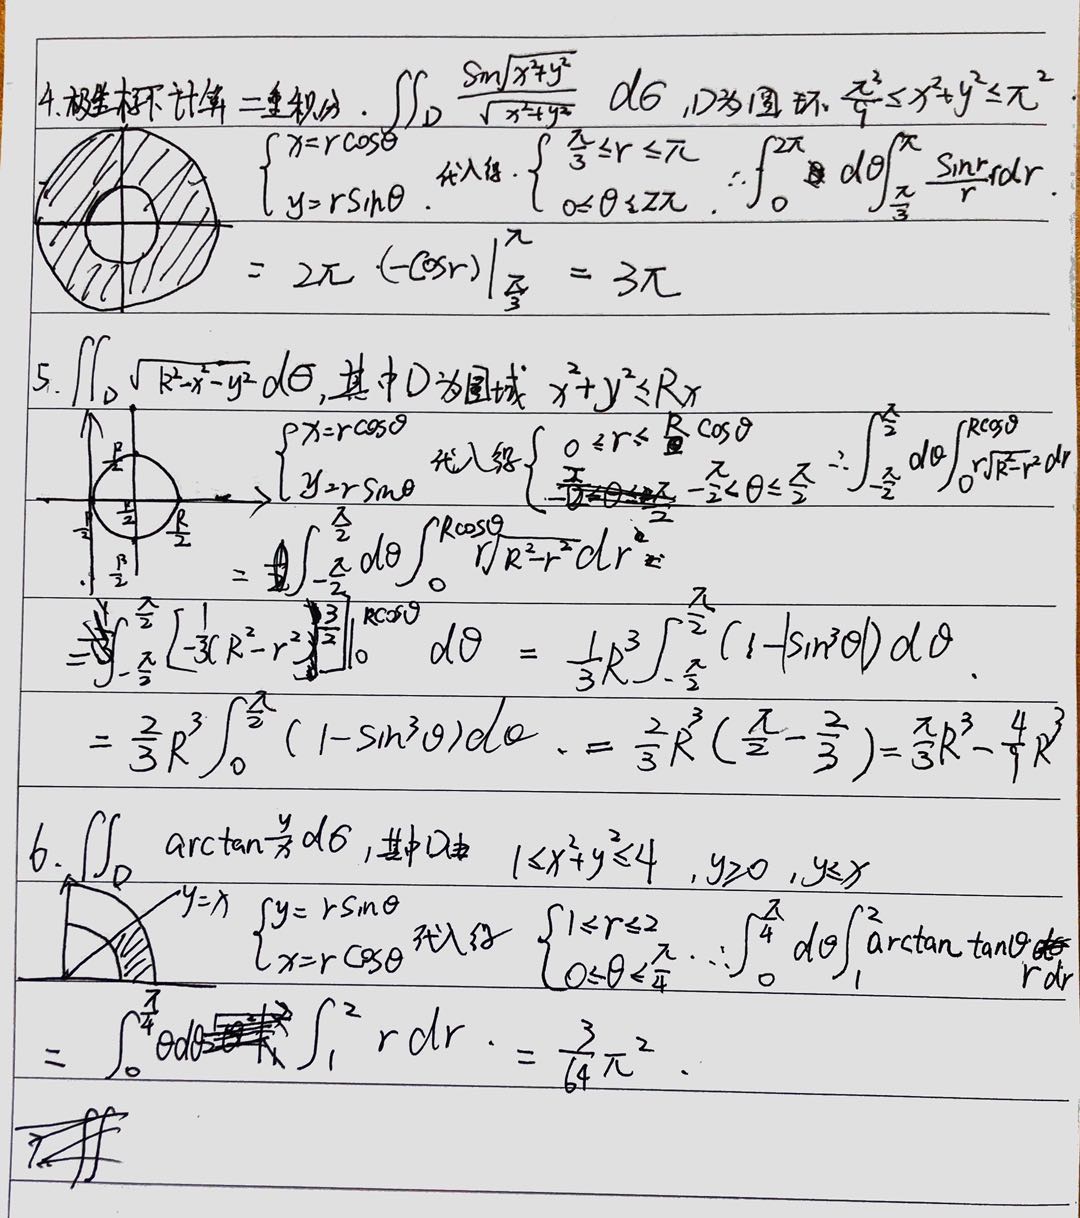 4.极坐标下计算二重积分. ∬_D sin√(x²+y²)/√(x²+y²) dσ ,D为圆环 π²/9≤x²+y²≤π²
{x=rcosθ y=rsinθ. 代入得. {π/3≤r≤π 0≤θ≤2π. ∴∫_0^{2π} dθ∫_{π/3}^{π} sinr/r rdr.
= 2π·(-cosr)|_{π/3}^{π} = 3π
5. ∬_D √(R²-x²-y²) dσ,其中D为圆域 x²+y²≤Rx
R/2 R/2 R/2 R/2
{x=rcosθ y=rsinθ 代入得{0≤r≤Rcosθ -π/2≤θ≤π/2 ∴∫_{-π/2}^{π/2} dθ∫_0^{Rcosθ} r√(R²-r²) dr
= ∫_{-π/2}^{π/2} dθ∫_0^{Rcosθ} r√(R²-r²) dr
= ∫_{-π/2}^{π/2} [-1/3(R²-r²)^{3/2}]|_0^{Rcosθ} dθ = 1/3 R³∫_{-π/2}^{π/2} (1-|sin³θ|)dθ.
= 2/3 R³∫_0^{π/2} (1-sin³θ)dθ. = 2/3 R³(π/2-2/3)=π/3 R³-4/9 R³
6. ∬_D arctan y/x dσ ,其中D由 1≤x²+y²≤4 ,y≥0 ,y≤x
y=x {y=rsinθ x=rcosθ 代入得 {1≤r≤2 0≤θ≤π/4 .∴∫_0^{π/4} dθ∫_1^2 arctan tanθ r dr
= ∫_0^{π/4} θdθ ∫_1^2 r dr. = 3/64 π².